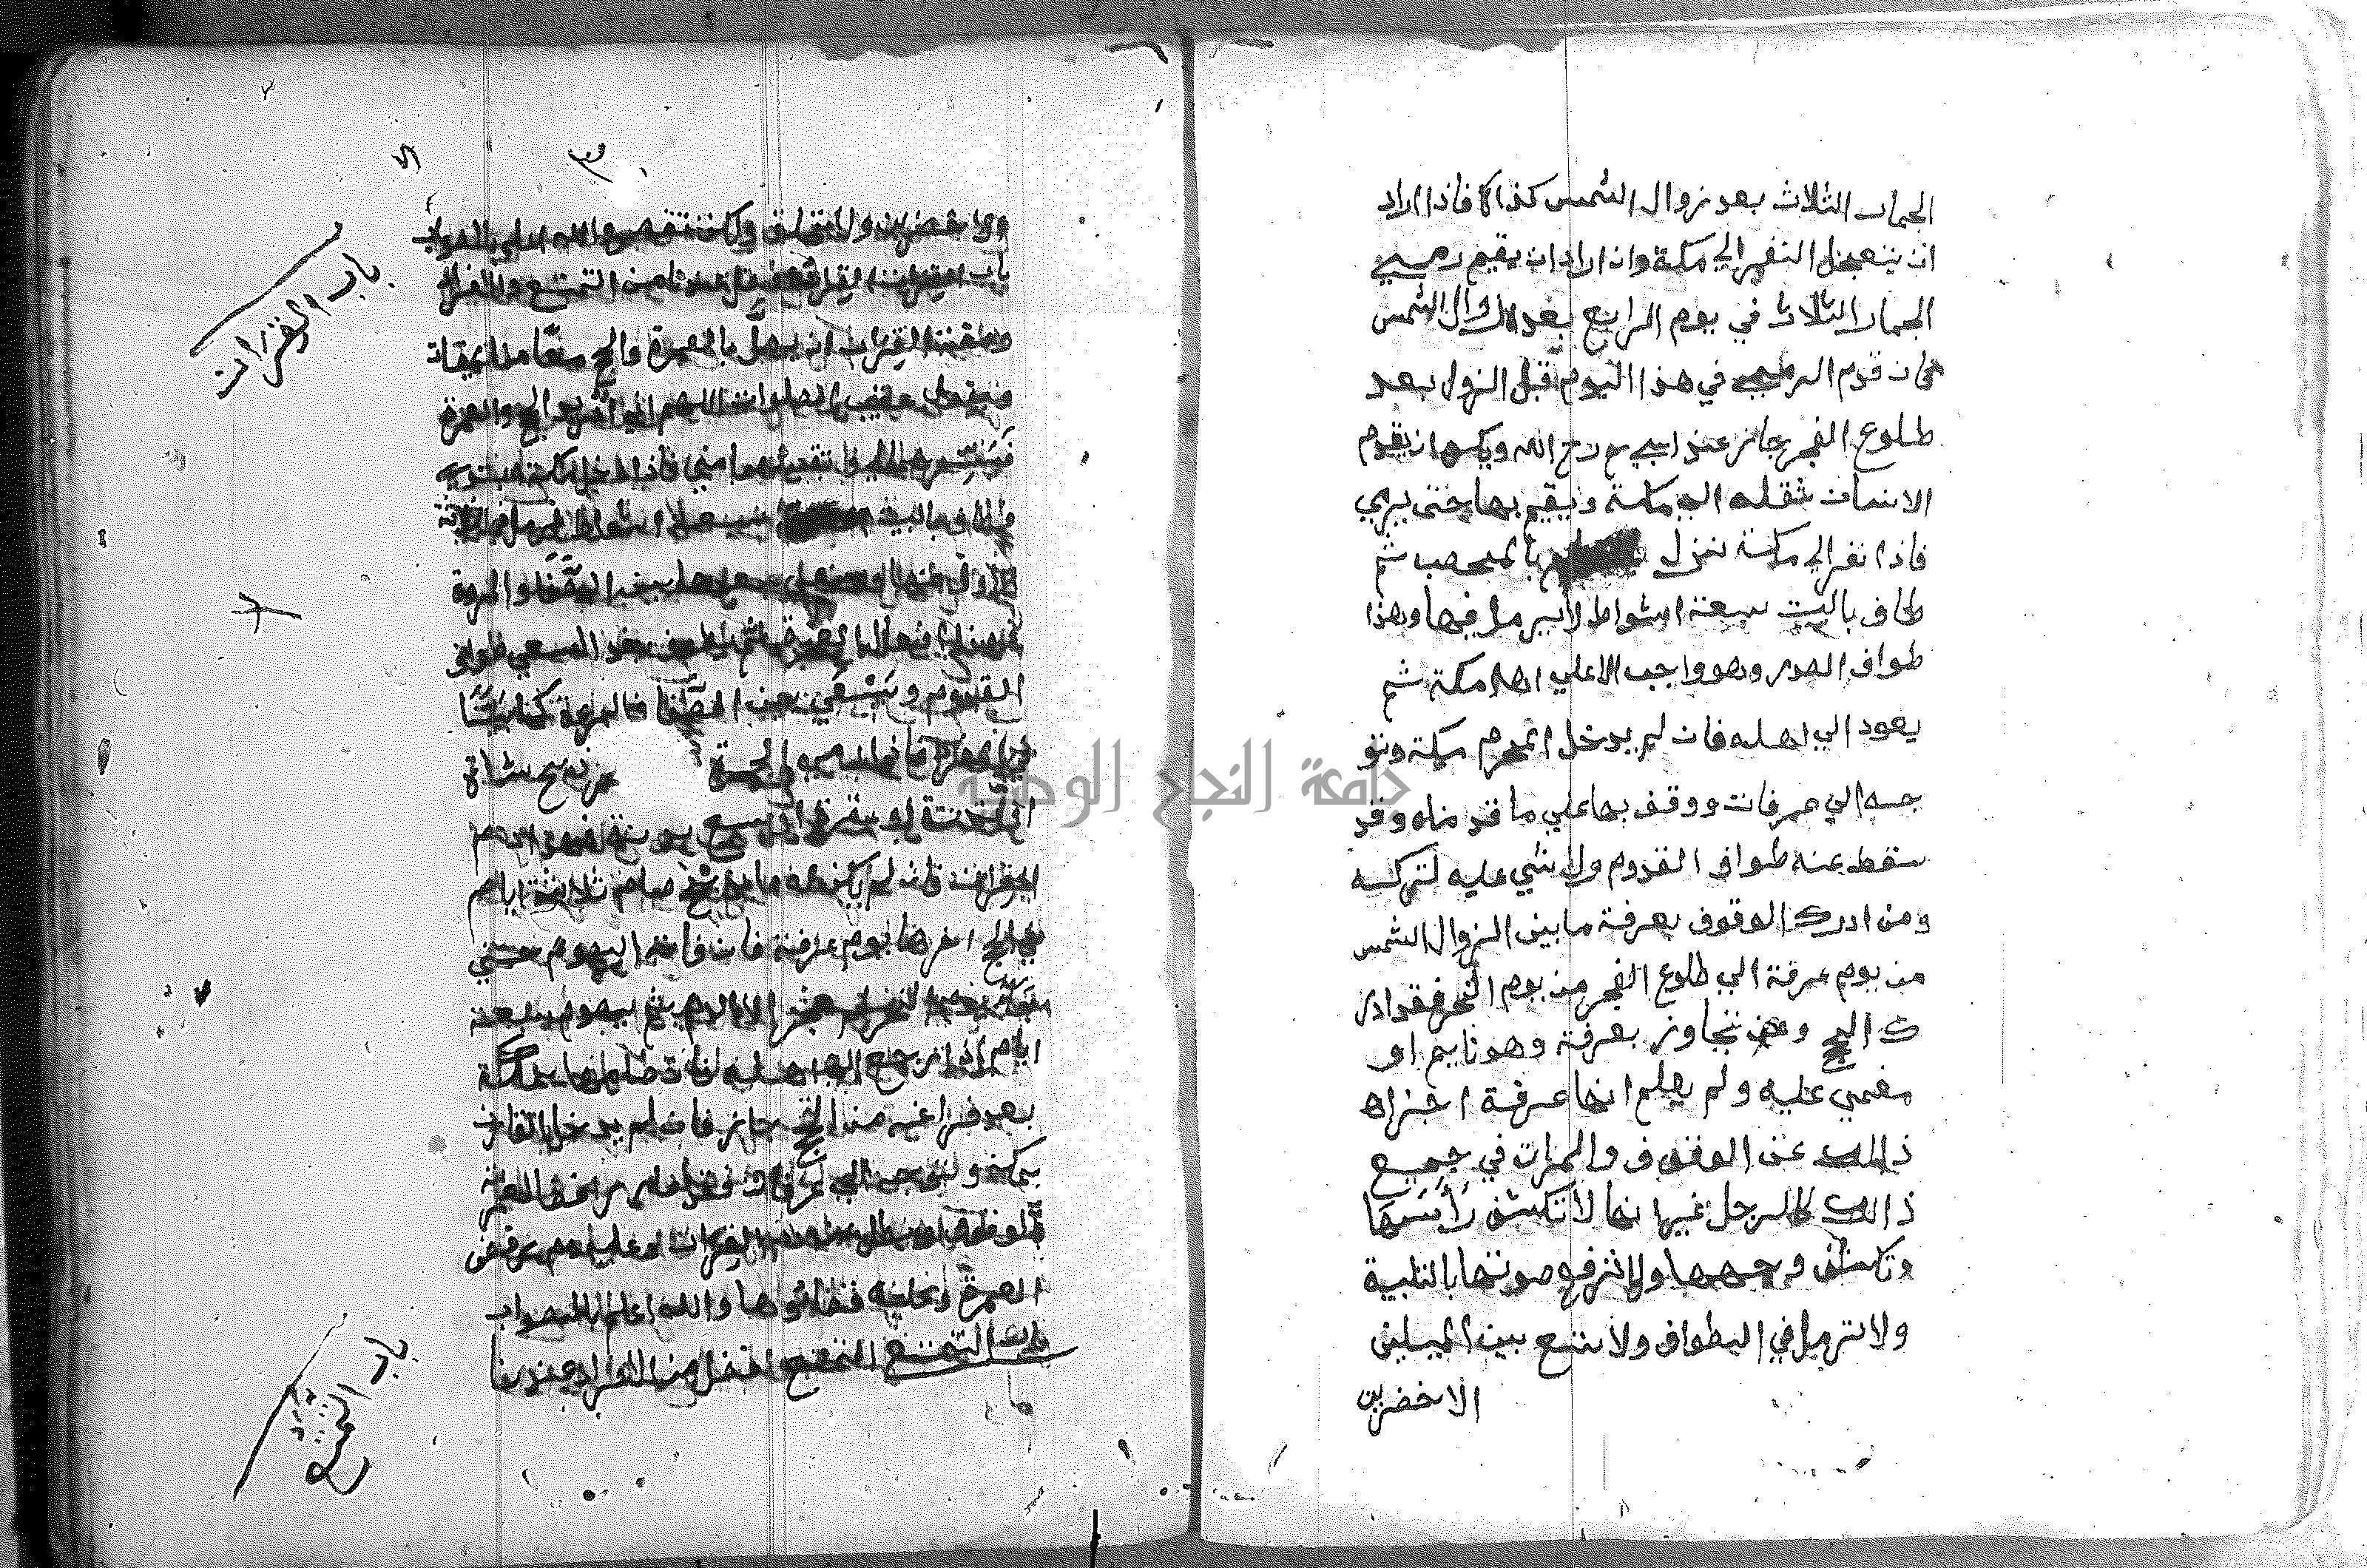 الجمار الثلاث بعد زوال الشمس كذالك فاذا اراد
ان يتعجل النفر الي مكة وان اراد ان يقيم رمي
الجمار الثلاث في يوم الرابع بعد زوال الشمس
فان قدم الرمي في هذا اليوم قبل الزول بعد
طلوع الفجر جاز عند ابي ح رح الله ويكره ان يقدم
الانسان ثقله الي مكة ويقيم بها حتي يرمي
فاذا نفر الي مكة نزل بالمحصب ثم
طاف بالبيت سبعة اشواط لا يرمل فيها وهذا
طواف الصدر وهو واجب الا علي اهل مكة ثم
يعود الي اهله فان لم يدخل المحرم مكة وتو
جه الي عرفات ووقف بها علي ما قدمناه وقد
سقط عنه طواف القدوم ولا شي عليه لتركه
ومن ادرك الوقوف بعرفة ما بين الزوال الشمس
من يوم عرفة الي طلوع الفجر من يوم النحر فقد ادر
ك الحج ومن تجاوز بعرفة وهو نايم او
مغمي عليه ولم يعلم انها عرفة اجزاه
ذالك عن الوقوف والمرات في جميع
ذالك كالرجل غير انها لا تكشف رأسها
وتكشف وجهها ولا ترفع صوتها بالتلبية
ولا ترمل في الطواف ولا تسع بين الميلين
الاخضرين
ولا تحلق ولكن تقصر والله اعلم بالصواب
باب القران القران افضل عندنا من التمتع والافراد
وصفة القران ان يهل بالعمرة والحج معا من الميقات
ويقول عقيب الصلوات اللهم اني اريد الحج والعمرة
فيسرهما لي وتقبلهما مني فاذا دخل مكة ابتدي
فطاف بالبيت سبعة اشواط يرمل في الثلاثة
الاول منها ويسعي بعدها بين الصفا والمروة
وهذا افعال العمرة ثم يطوف بعد السعي طواف
القدوم ويسعي بين الصفا والمروة كما بينا
في المفرد فاذا رمي الجمرة ذبح شاة
او بقرة او بدنة فهذا دم
القران فان لم يكن له ما يذبح صام ثلاثة ايام
في الحج اخرها يوم عرفة فان فاته الصوم حتي
يوم النحر لم يجزه الا الدم ثم يصوم سبعة
ايام اذا رجع الي اهله فان صامها بمكة
بعد فراغه من الحج جاز فان لم يدخل القارن
بمكة وتوجه الي عرفات فقد صار رافضا لعمرته
بالوقوف وبطل عنه دم القران وعليه دم لرفض
العمرة وعليه قضاؤها والله اعلم بالصواب
باب التمتع التمتع افضل من الافراد عندنا
باب القران
باب التمتع
جامعة النجاح الوطنية